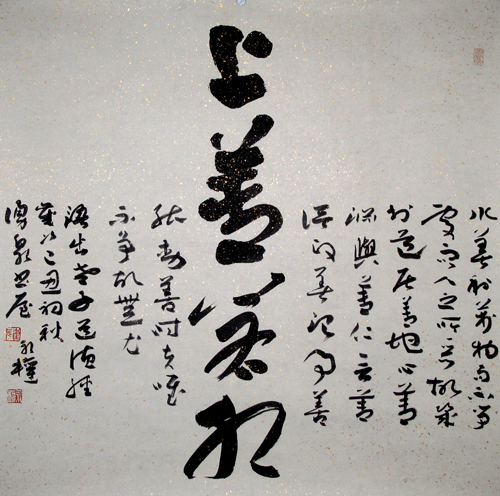 上善若水
水善利萬物而不爭
處眾人之所惡故幾
於道居善地心善
淵與善仁言善
信政善治事善
能動善時夫唯
不爭故無尤
語出老子道德經
歲次己丑初秋